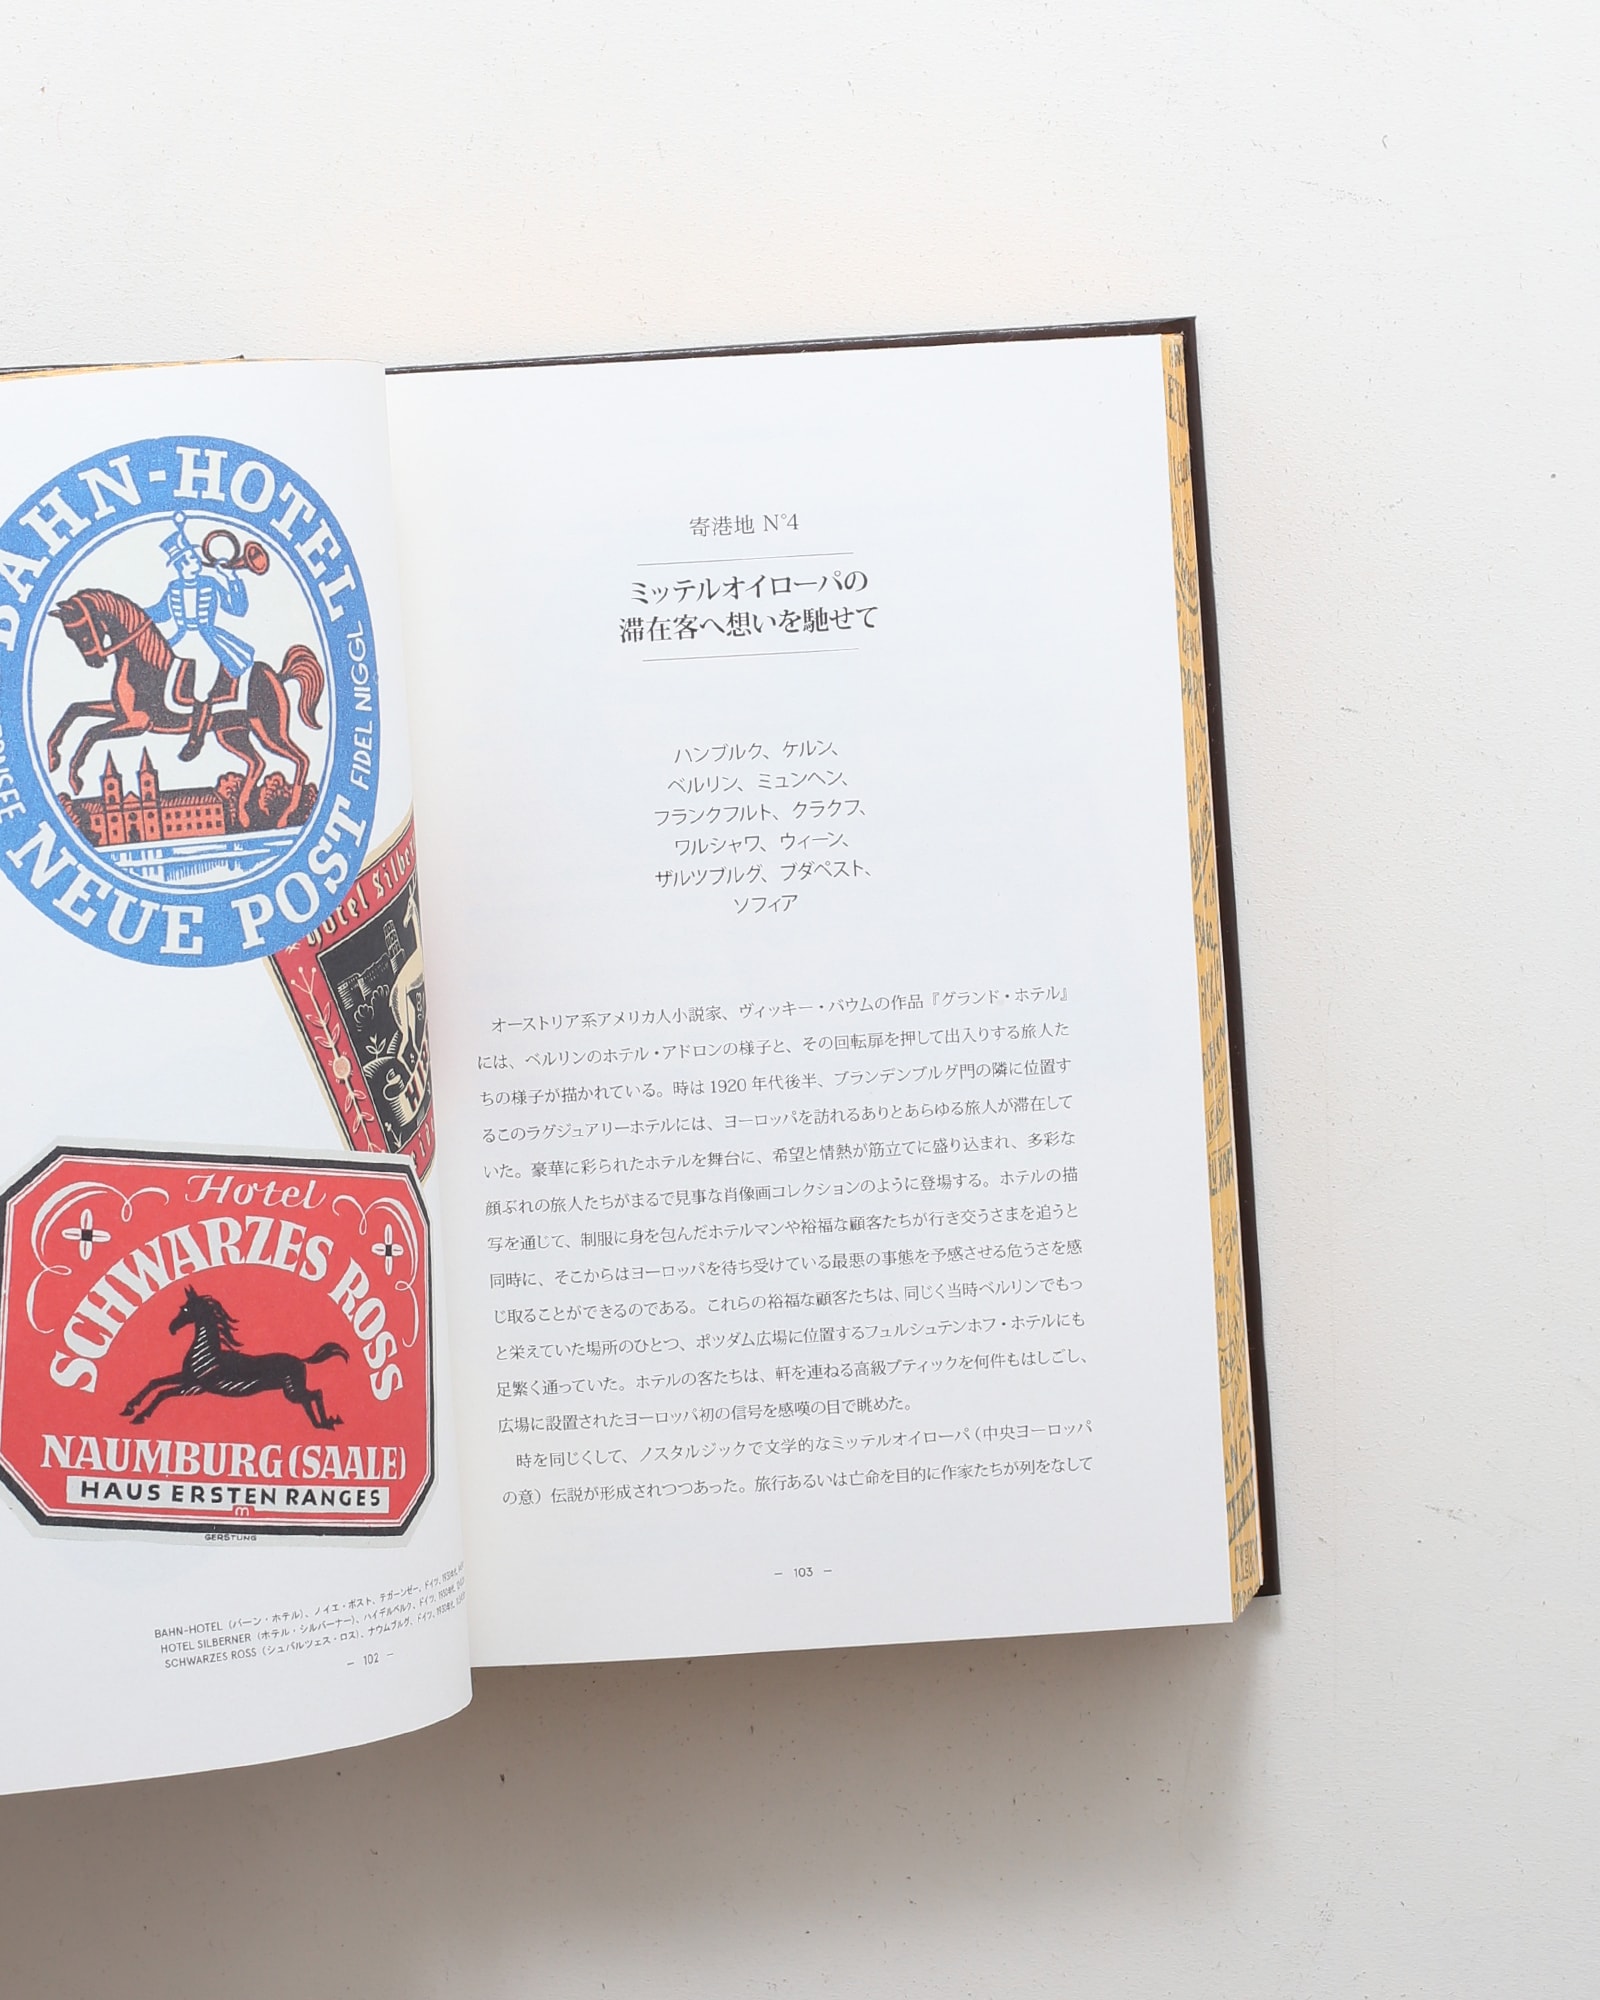 BAHN-HOTEL
FIDEL NIGGL
NEUE POST
Hotel Silber
Hotel
SCHWARZES ROSS
NAUMBURG (SAALE)
HAUS ERSTEN RANGES
m
GERSTUNG
BAHN-HOTEL（バーン・ホテル）、ノイエ・ポスト、テガーンゼー、ドイツ、1930年代、
HOTEL SILBERNER（ホテル・シルバーナー）、ハイデルベルク、ドイツ、1930年代、
SCHWARZES ROSS（シュバルツェス・ロス）、ナウムブルグ、ドイツ、1930年代、
– 102 –
寄港地 N°4
ミッテルオイローパの
滞在客へ想いを馳せて
ハンブルク、ケルン、
ベルリン、ミュンヘン、
フランクフルト、クラクフ、
ワルシャワ、ウィーン、
ザルツブルグ、ブダペスト、
ソフィア
オーストリア系アメリカ人小説家、ヴィッキー・バウムの作品『グランド・ホテル』
には、ベルリンのホテル・アドロンの様子と、その回転扉を押して出入りする旅人た
ちの様子が描かれている。時は1920年代後半、ブランデンブルグ門の隣に位置す
るこのラグジュアリーホテルには、ヨーロッパを訪れるありとあらゆる旅人が滞在して
いた。豪華に彩られたホテルを舞台に、希望と情熱が筋立てに盛り込まれ、多彩な
顔ぶれの旅人たちがまるで見事な肖像画コレクションのように登場する。ホテルの描
写を通じて、制服に身を包んだホテルマンや裕福な顧客たちが行き交うさまを追うと
同時に、そこからはヨーロッパを待ち受けている最悪の事態を予感させる危うさを感
じ取ることができるのである。これらの裕福な顧客たちは、同じく当時ベルリンでもっ
と栄えていた場所のひとつ、ポツダム広場に位置するフュルシュテンホフ・ホテルにも
足繁く通っていた。ホテルの客たちは、軒を連ねる高級ブティックを何件もはしごし、
広場に設置されたヨーロッパ初の信号を感嘆の目で眺めた。
時を同じくして、ノスタルジックで文学的なミッテルオイローパ（中央ヨーロッパ
の意）伝説が形成されつつあった。旅行あるいは亡命を目的に作家たちが列をなして
– 103 –